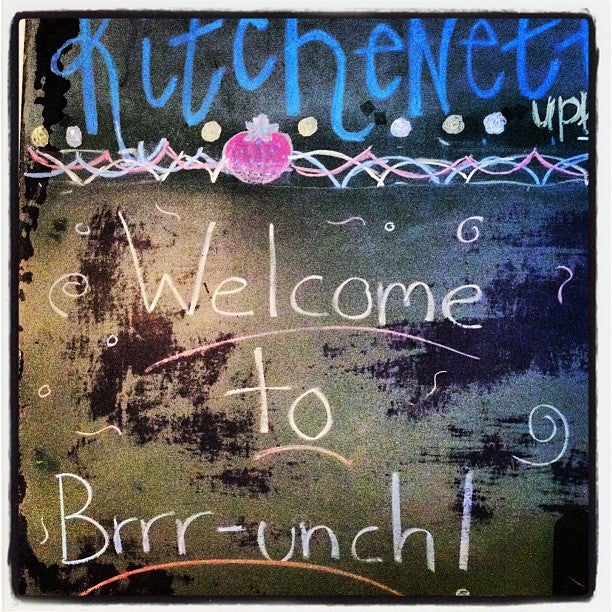 Kitchenett
up!
Welcome
to
Brrr-unch!